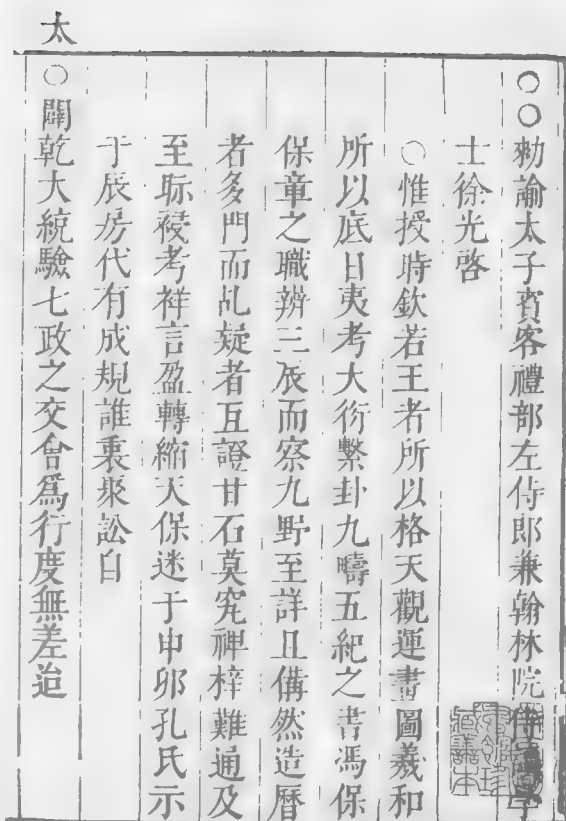 太
○○勑諭太子賓客禮部左侍郎兼翰林院侍學
士徐光啓
○惟授時欽若王者所以格天觀運畫圖羲和
所以底日夷考大衍繫卦九疇五紀之書馮保
保章之職辨三辰而察九野至詳且備然造曆
者多門而乩疑者互證甘石莫究禆梓難通及
至眎祲考祥言盈轉縮天保迷于申卯孔氏示
于辰房代有成規誰秉聚訟自
○闢乾大統驗七政之交會爲行度無差迨